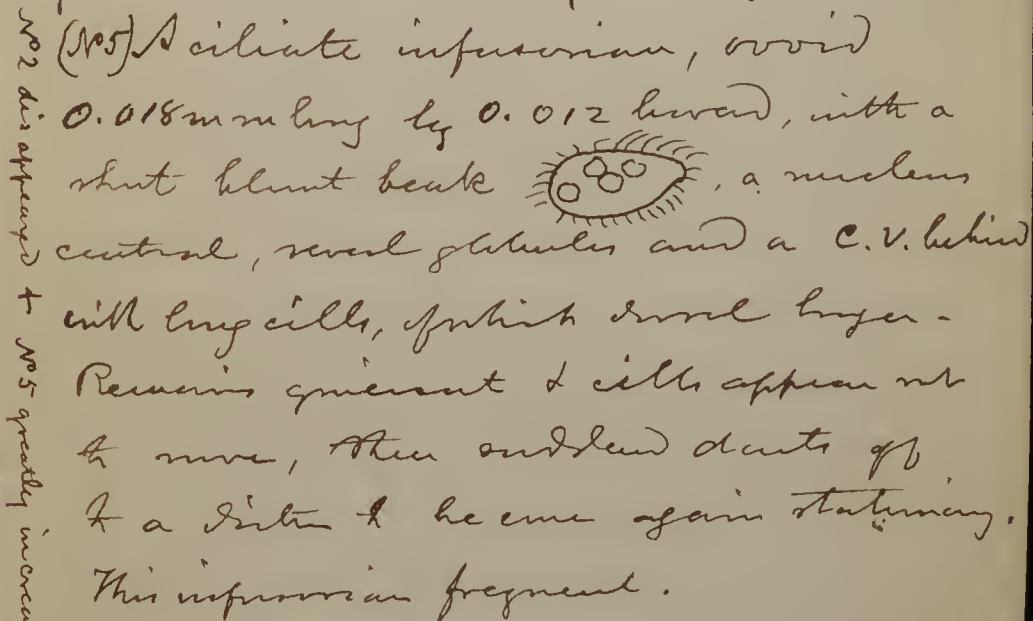 (Nº5) A ciliate infusorian, ovoid
0.018mm long by 0.012 broad, with a
short blunt beak , a nucleus
central, several globules and a C.V. behind
with long cills, of which dorsal longer -
Remains quiescent & cills appear not
to move, then sudden darts off
to a distance to become again stationary.
This infusorian frequent.
Nº2 disappeared + Nº5 greatly increa